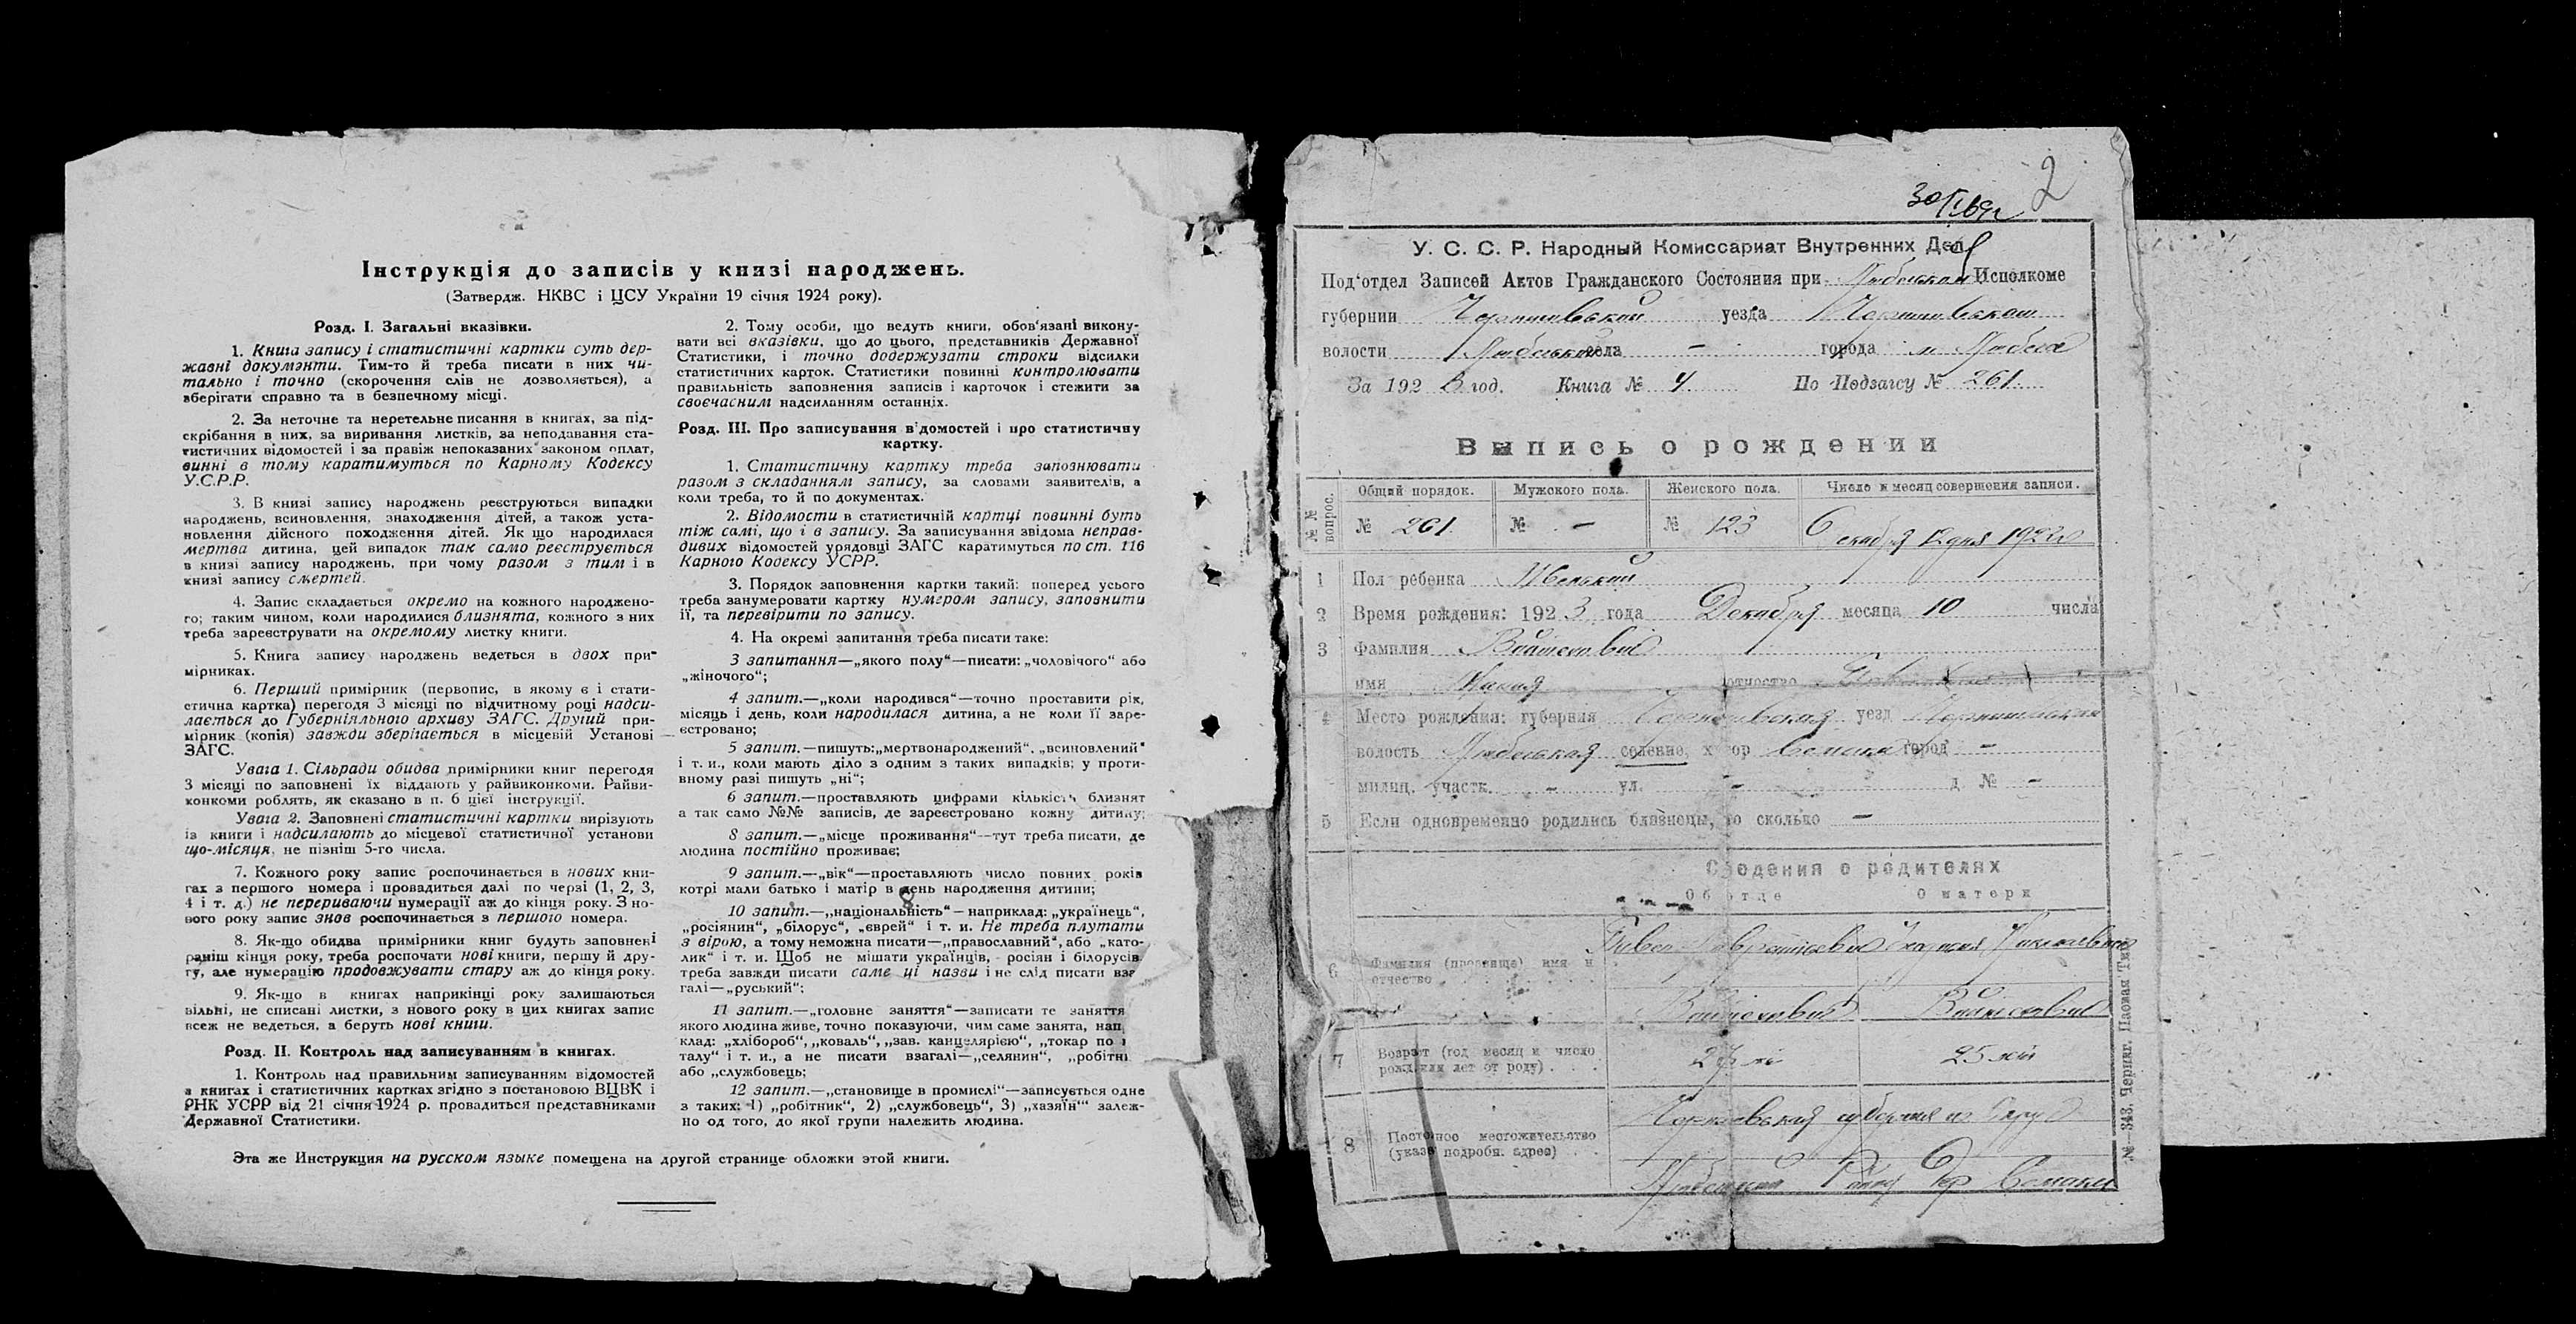 Інструкція до записів у книзі народжень.
(Затвердж. НКВС і ЦСУ України 19 січня 1924 року).
Розд. I. Загальні вказівки.
1. Книга запису і статистичні картки суть дер-
жавні докумэнти. Тим-то й треба писати в них чи-
тально і точно (скорочення слів не дозволяється), а
вберігати справно та в безпечному місці.
2. За неточне та неретельне писання в книгах, за під-
скрібання в них, за виривання листків, за неподавання ста-
тистичних відомостей і за правіж непоказаних законом оплат,
винні в тому каратимуться по Карному Кодексу
У.С.Р.Р.
3. В книзі запису народжень реєструються випадки
народжень, всиновлення, знаходження дітей, а також уста-
новлення дійсного походження дітей. Як що народилася
мертва дитина, цей випадок так само реєструється
в книзі запису народжень, при чому разом з тим і в
книзі запису смертей.
4. Запис складається окремо на кожного народжено-
го; таким чином, коли народилися близнята, кожного з них
треба зареєструвати на окремому листку книги.
5. Книга запису народжень ведеться в двох при-
мірниках.
6. Перший примірник (первопис, в якому є і стати-
стична картка) перегодя 3 місяці по відчитному році надси-
лається до Губерніяльного архиву ЗАГС. Другий при-
мірник (копія) завжди зберігається в місцевій Установі
ЗАГС.
Увага 1. Сільради обидва примірники книг перегодя
3 місяці по заповнені їх віддають у райвиконкоми. Райви-
конкоми роблять, як сказано в п. 6 цієї інструкції.
Увага 2. Заповнені статистичні картки вирізують
із книги і надсилають до місцевої статистичної установи
що-місяця, не пізніш 5-го числа.
7. Кожного року запис розпочинається в нових кни-
гах з першого номера і провадиться далі по черзі (1, 2, 3,
4 і т. д.) не перериваючи нумерації аж до кінця року. З но-
вого року запис знов розпочинається з першого номера.
8. Як-що обидва примірники книг будуть заповнені
раніш кінця року, треба розпочати нові книги, першу й дру-
гу, але нумерацію продовжувати стару аж до кінця року.
9. Як-що в книгах наприкінці року залишаються
вільні, не списані листки, з нового року в цих книгах запис
всеж не ведеться, а беруть нові книги.
Розд. II. Контроль над записуванням в книгах.
1. Контроль над правильним записуванням відомостей
в книгах і статистичних картках згідно з постановою ВЦВК і
РНК УСРР від 21 січня 1924 р. провадиться представниками
Державної Статистики.
2. Тому особи, що ведуть книги, обов'язані викону-
вати всі вказівки, що до цього, представників Державної
Статистики, і точно додержувати строки відсилки
статистичних карток. Статистики повинні контролювати
правильність заповнення записів і карточок і стежити за
своєчасним надсиланням останніх.
Розд. III. Про записування відомостей і про статистичну
картку.
1. Статистичну картку треба заповнювати
разом з складанням запису, за словами заявителів, а
коли треба, то й по документах.
2. Відомости в статистичній картці повинні буть
тіж самі, що і в запису. За записування звідома неправ-
дивих відомостей урядовці ЗАГС каратимуться по ст. 116
Карного Кодексу УСРР.
3. Порядок заповнення картки такий: поперед усього
треба занумеровати картку нумером запису, заповнити
її, та перевірити по запису.
4. На окремі запитання треба писати таке:
3 запитання—„якого полу“—писати: „чоловічого“ або
„жіночого“;
4 запит.—„коли народився“—точно проставити рік,
місяць і день, коли народилася дитина, а не коли її заре-
єстровано;
5 запит.—пишуть: „мертвонароджений“, „всиновлений“
і т. и., коли мають діло з одним з таких випадків; у проти-
вному разі пишуть „ні“;
6 запит.—проставляють цифрами кількість близнят
а так само №№ записів, де зареєстровано кожну дитину;
8 запит.—„місце проживання“—тут треба писати, де
людина постійно проживає;
9 запит.—„вік“—проставляють число повних років
котрі мали батько і матір в день народження дитини;
10 запит.—„національність“—наприклад: „українець“,
„росіянин“, „білорус“, „єврей“ і т. и. Не треба плутати
з вірою, а тому неможна писати—„православний“, або „като-
лик“ і т. и. Щоб не мішати українців, росіян і білорусів
треба завжди писати саме ці назви і не слід писати вза
галі—„руський“;
11 запит.—„головне заняття“—записати те заняття
якого людина живе, точно показуючи, чим саме занята, нап
клад: „хлібороб“, „коваль“, „зав. канцелярією“, „токар по
талу“ і т. и., а не писати взагалі—„селянин“, „робітн
або „службовець;
12 запит.—„становище в промислі“—записується одне
з таких: 1) „робітник“, 2) „службовець“, 3) „хазяїн“ залеж-
но од того, до якої групи належить людина.
Эта же Инструкция на русском языке помещена на другой странице обложки этой книги.
8
2
У. С. С. Р. Народный Комиссариат Внутренних Дел
Под'отдел Записей Актов Гражданского Состояния при Любецком Исполкоме
губернии Черниговской уезда Черниговском
волости Любецкой села - города м. Любеч
За 1923 год. Книга № 4 По Подзагсу № 261
Выпись о рождении
№ № вопрос. Общий порядок. Мужского пола. Женского пола. Число и месяц совершения записи.
№ 261 № - № 123 Декабря 12 дня
1 Пол ребенка Женский
2 Время рождения: 1923 года Декабря месяца 10 числа
3 Фамилия Войтенков
имя отчество
4 Место рождения: губерния Черниговская уезд Черниговский
волость Любецкая селение, хутор город -
милиц. участк. - ул. - д. № -
5 Если одновременно родились близнецы, то сколько -
Сведения о родителях
Об отце О матери
6 Фамилия (прозвище) имя и
отчество
7 Возраст (год месяц и число
рождения лет от роду) 25 лет
8 Постоянное местожительство
(указ. подробн. адрес)
Черниговская губерния
№—343. Черниг. Паовая Тип.